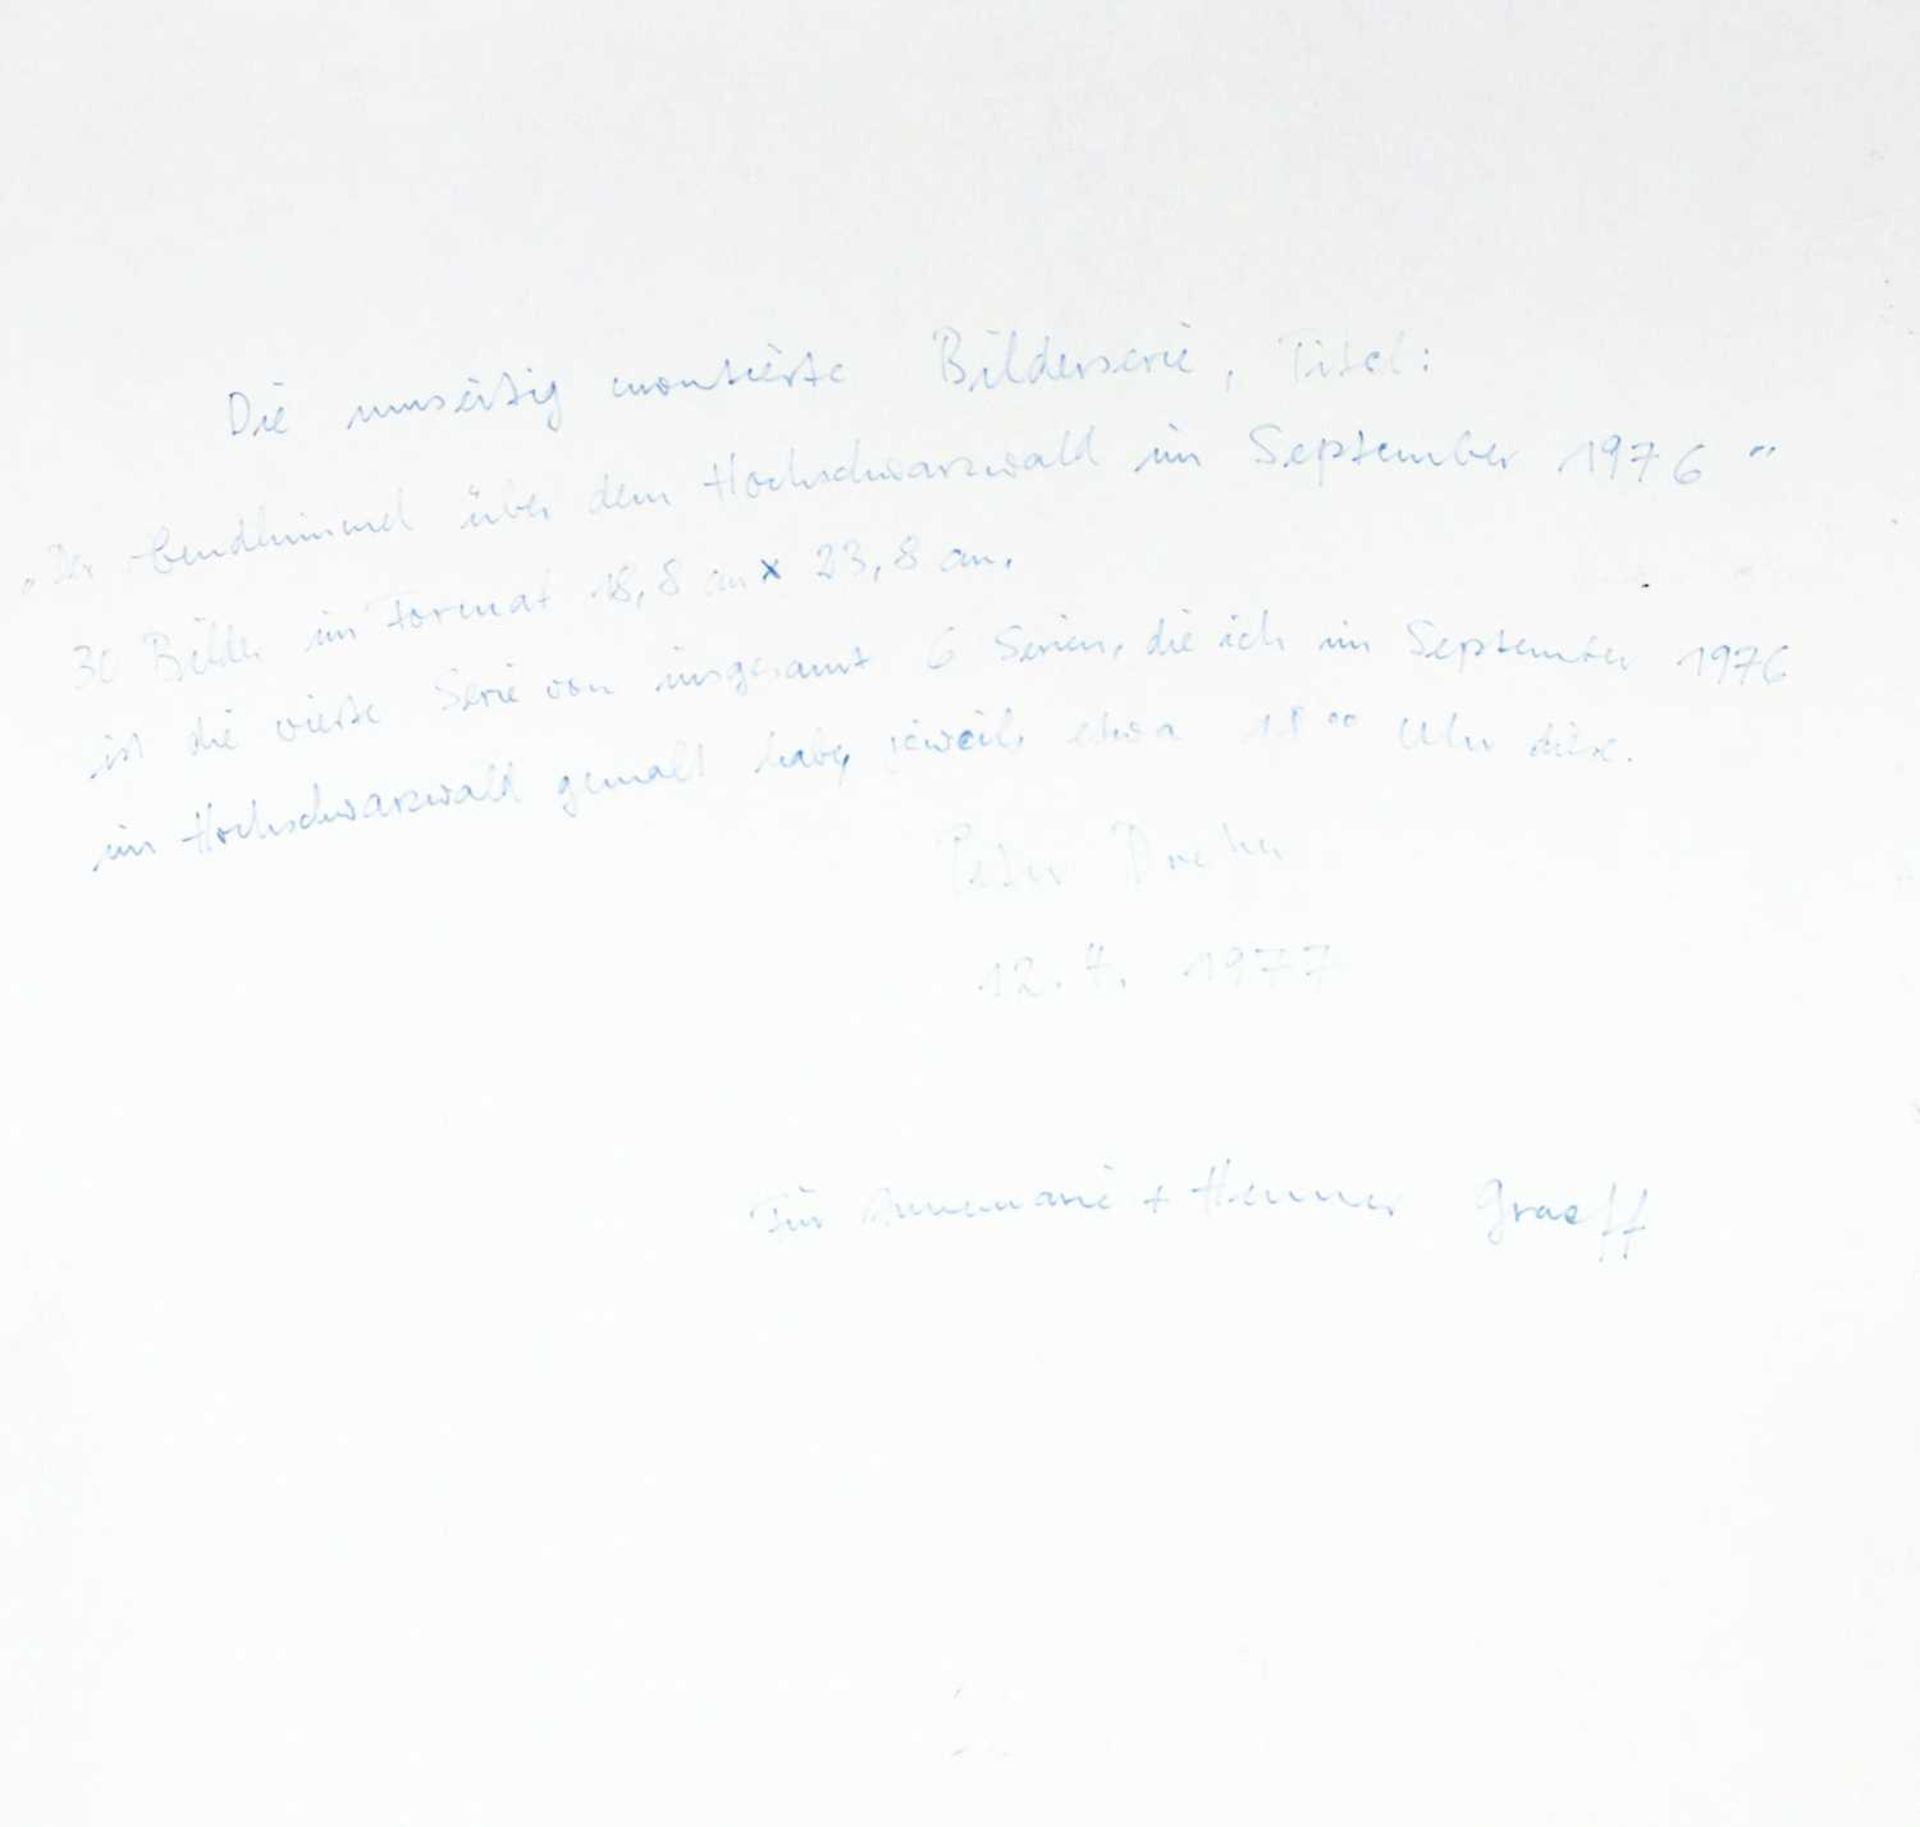 Die umseitig montierte Bilderserie, Titel:
„Der Abendhimmel über dem Hochschwarzwald im September 1976"
30 Bilder im Format 18,8 cm x 23,8 cm,
ist die vierte Serie von insgesamt 6 Serien, die ich im September 1976
im Hochschwarzwald gemalt habe, jeweils etwa 18 00 Uhr
Peter Dreher
12.7. 1977
Für Annemarie + Henner Graeff